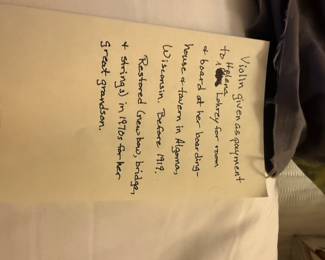 Violin given as payment
to Helena Lohrey for room
& board at her boarding-
house & tavern in Algoma,
Wisconsin. Before 1919.
Restored (new bow, bridge,
& strings) in 1970s for her
great grandson.